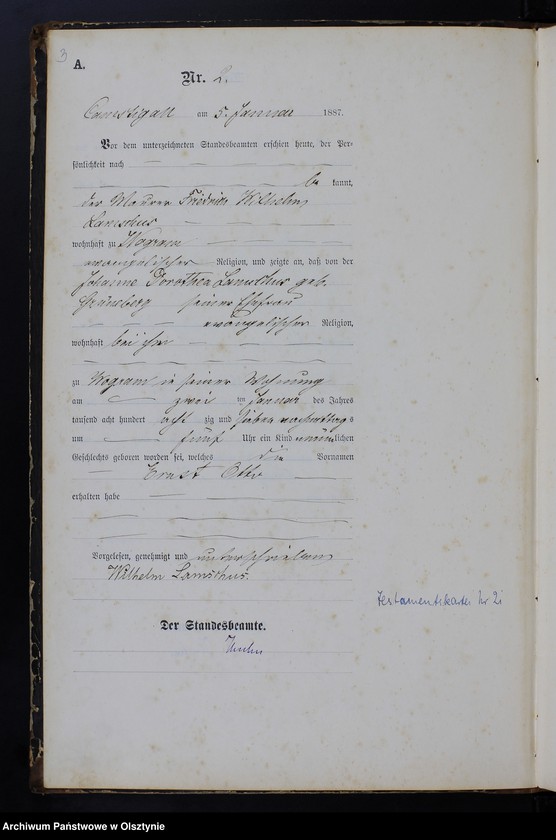 3
A.
Nr. 2.
Camstigall am 5. Januar 1887.
Vor dem unterzeichneten Standesbeamten erschien heute, der Per-
sönlichkeit nach
be kannt,
der Maurer Friedrich Wilhelm
wohnhaft zu Wogram
evangelischer Religion, und zeigte an, daß von der
Johanne Dorothea geb.
Grünsberg seiner Ehefrau
evangelischer Religion,
wohnhaft bei ihm
zu Wogram in seiner Wohnung
am zwei ten Januar des Jahres
tausend acht hundert acht zig und sieben nachmittags
um fünf Uhr ein Kind männlichen
Geschlechts geboren worden sei, welches die Vornamen
Ernst Otto
erhalten habe
Vorgelesen, genehmigt und unterschrieben
Wilhelm
Testamentskartei Nr 2
Der Standesbeamte.
Archiwum Państwowe w Olsztynie